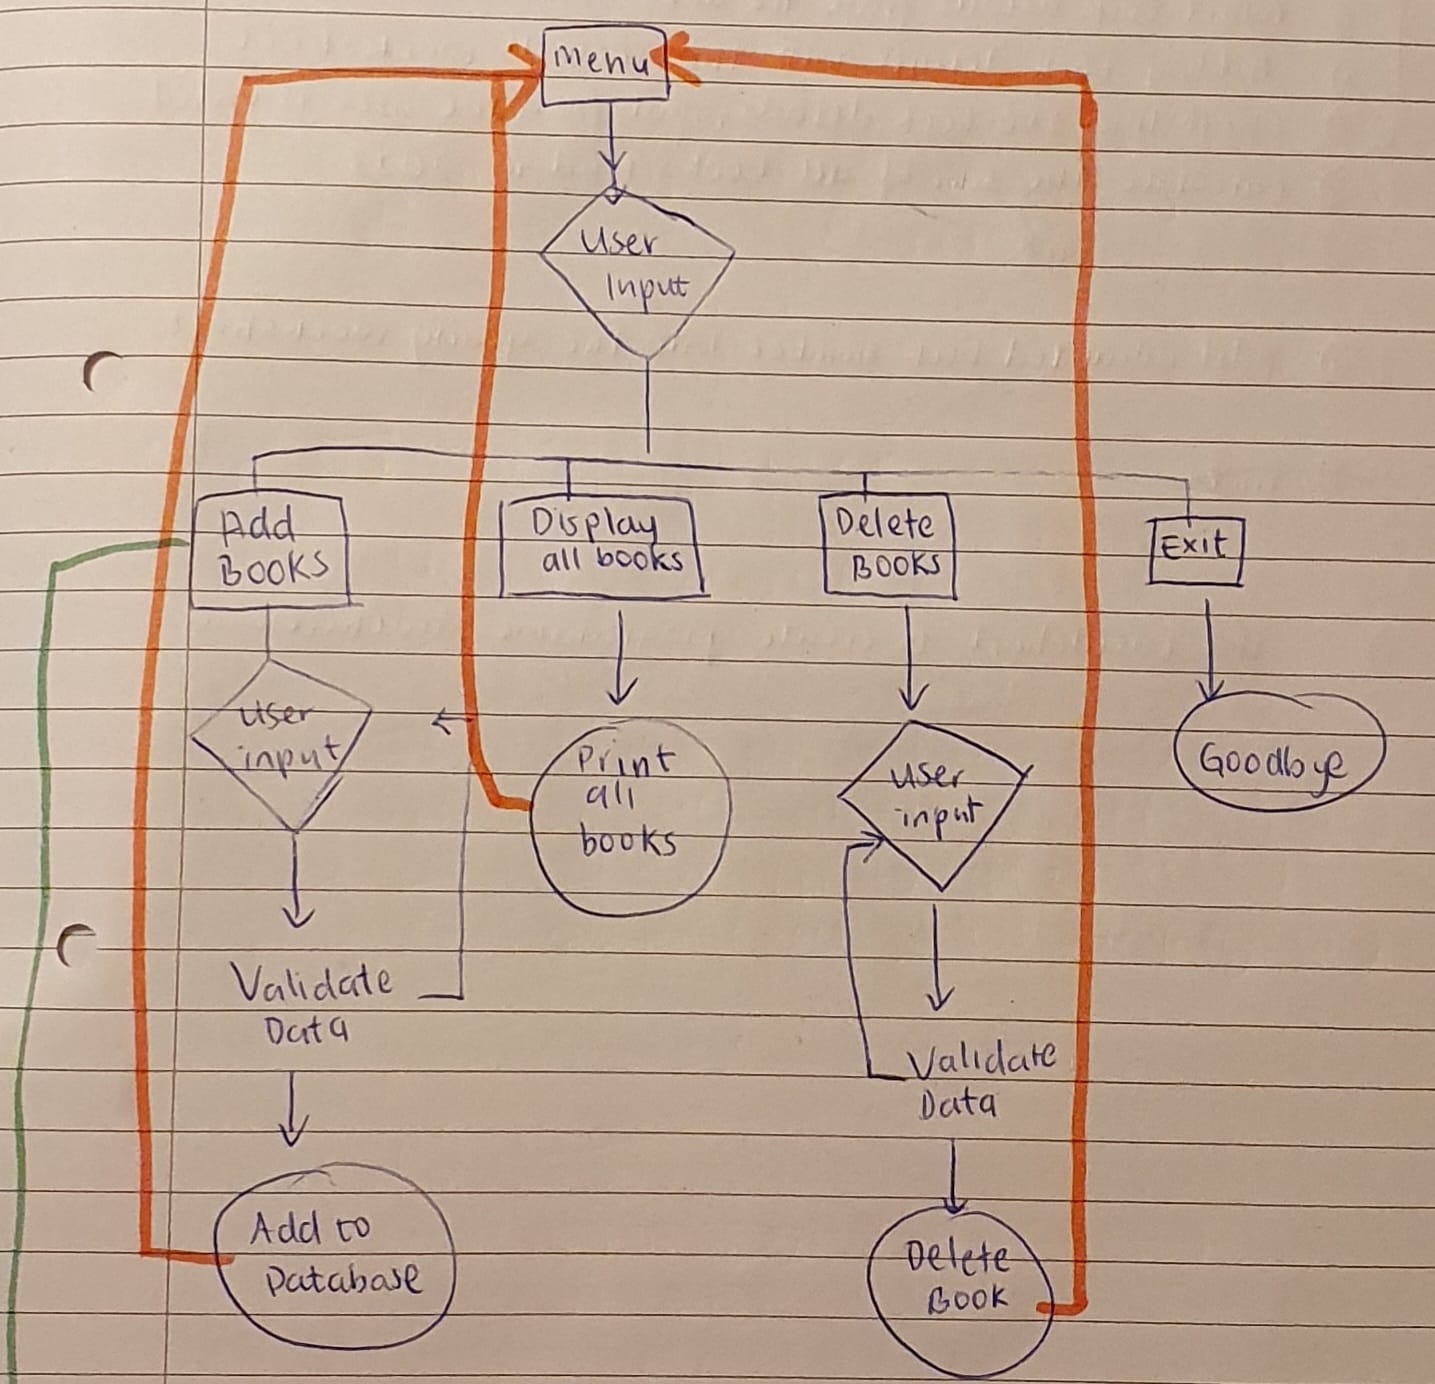 Menu
User
Input
Add
Books
Display
all books
Delete
Books
Exit
User
input
Print
all
books
User
input
Goodbye
Validate
Data
Validate
Data
Add to
Database
Delete
Book